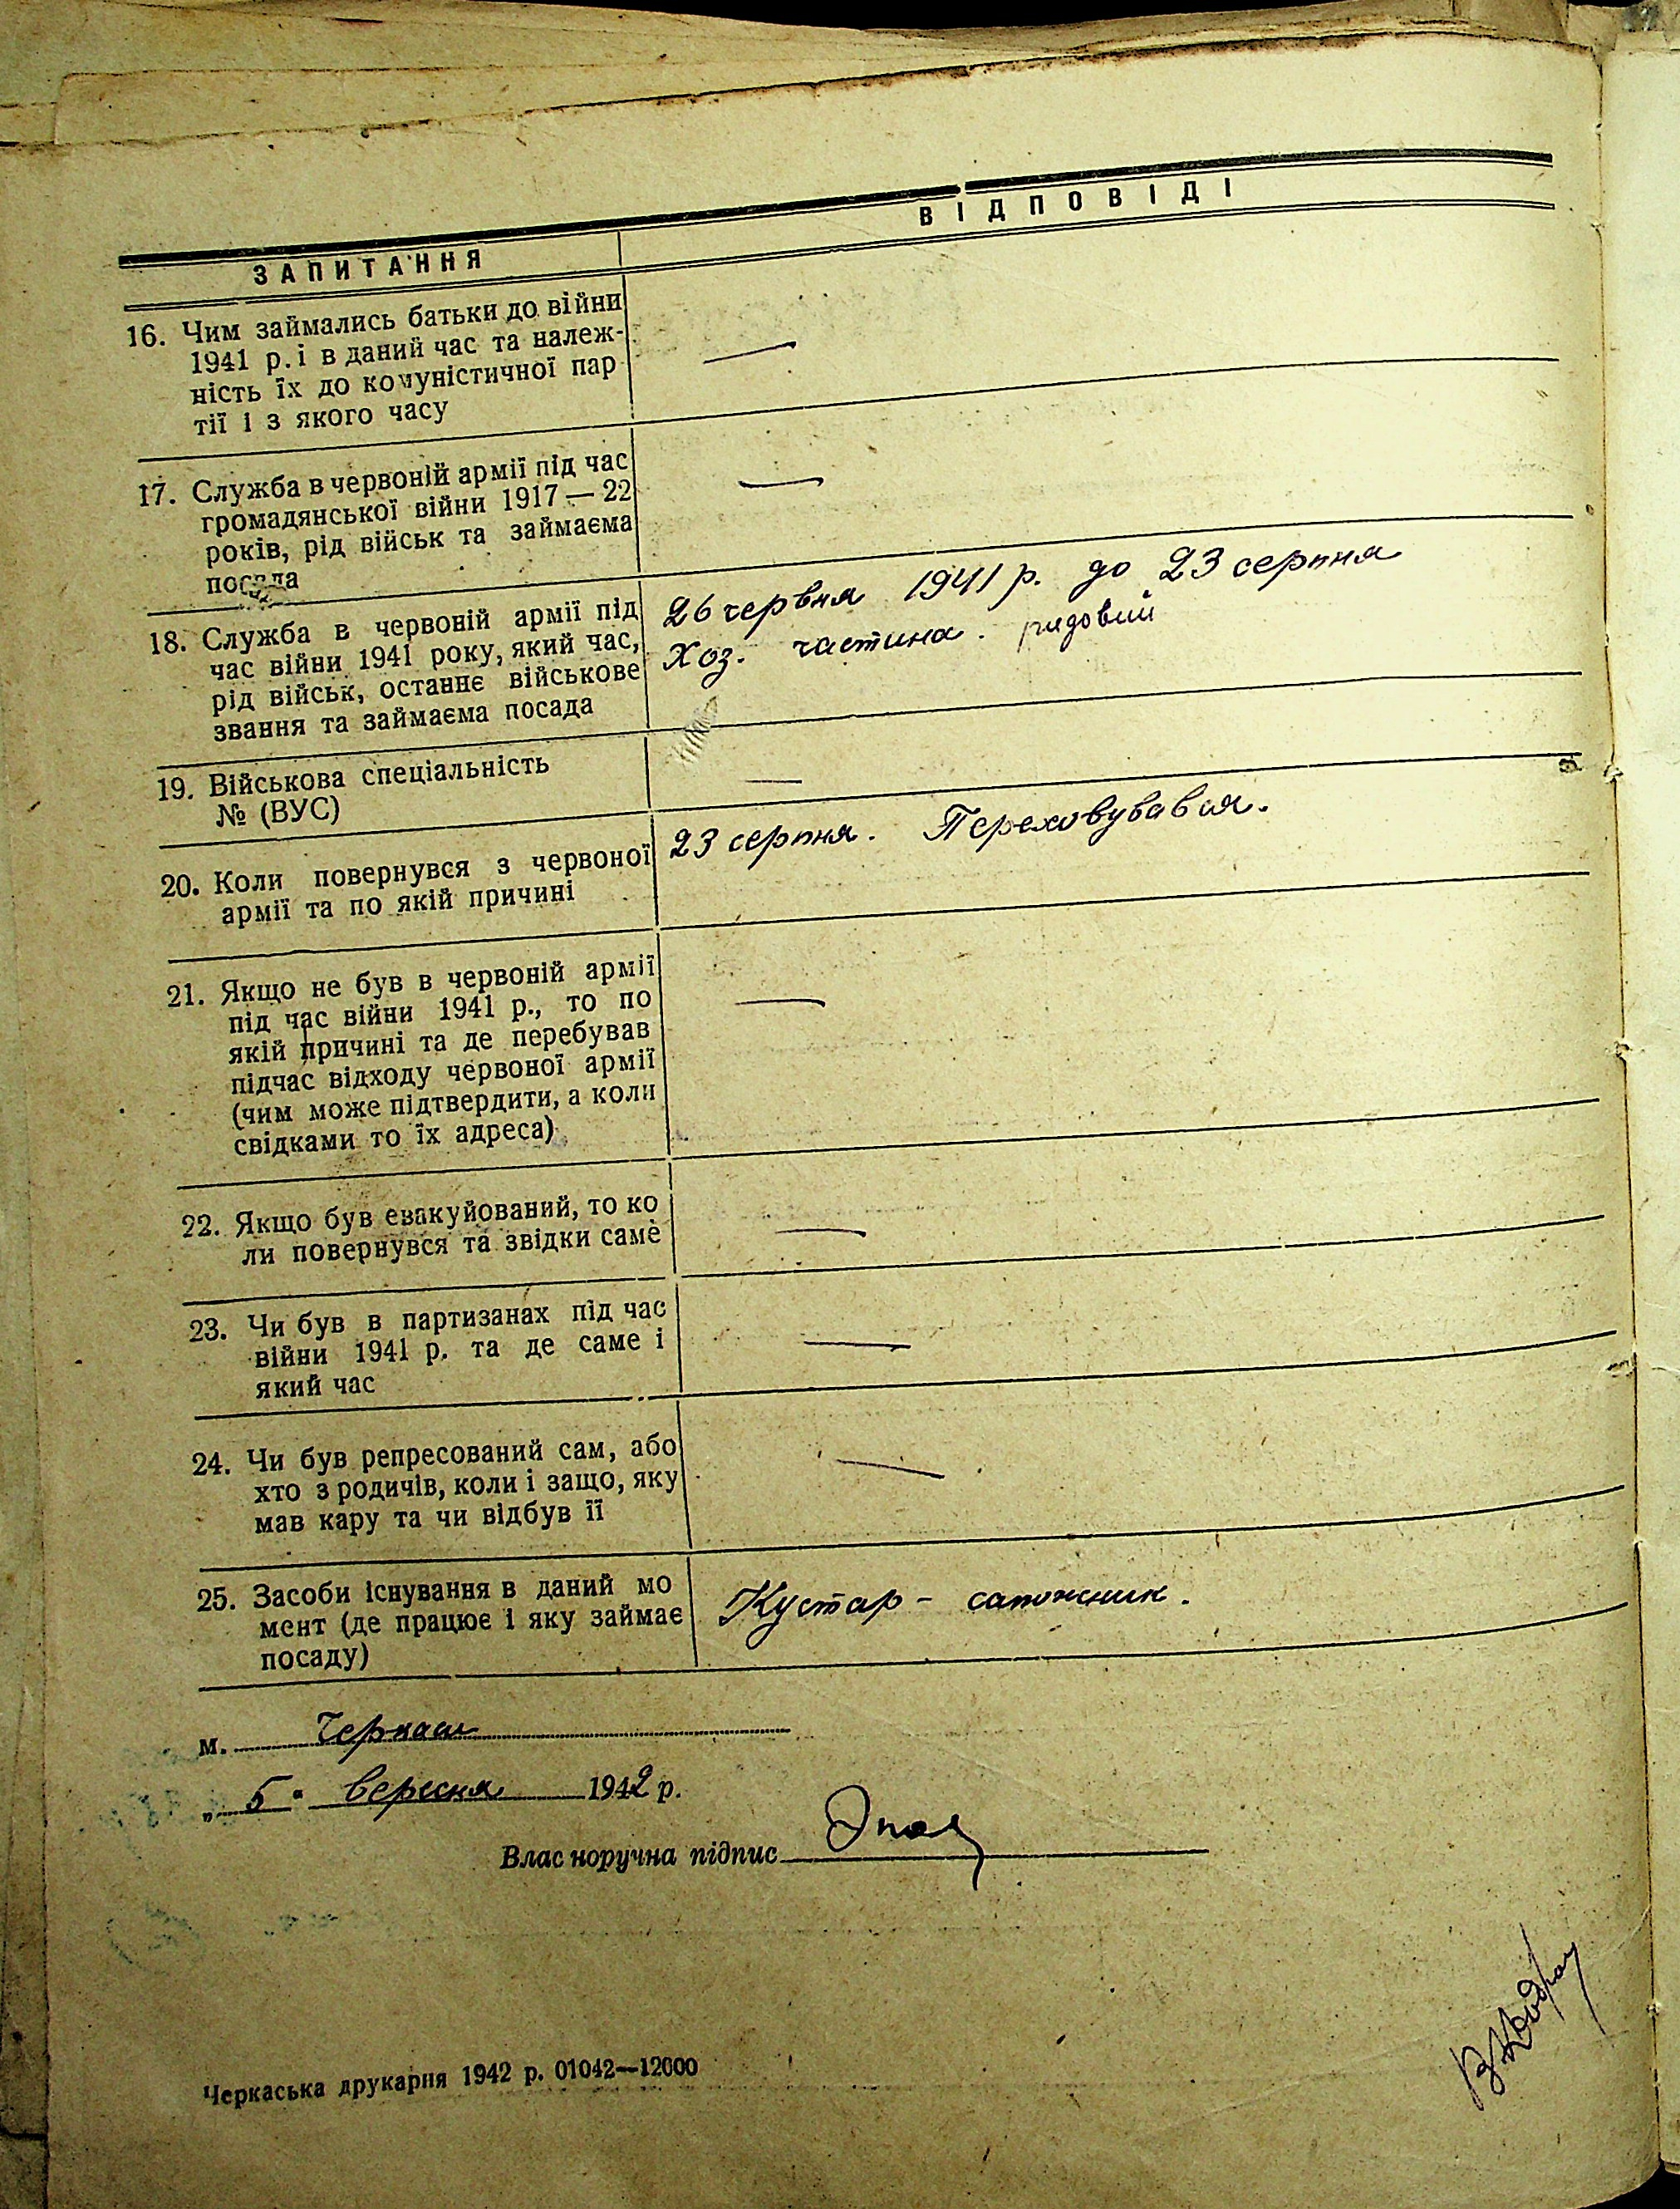 ЗАПИТАННЯ
ВІДПОВІДІ
16. Чим займались батьки до війни
1941 р. і в даний час та належ-
ність їх до комуністичної пар
тії і з якого часу
—
17. Служба в червоній армії під час
громадянської війни 1917—22
років, рід військ та займаєма
посада
—
18. Служба в червоній армії під
час війни 1941 року, який час,
рід військ, останнє військове
звання та займаєма посада
26 червня 1941 р. до 23 серпня
Хоз. частина. рядовий
19. Військова спеціальність
№ (ВУС)
—
20. Коли повернувся з червоної
армії та по якій причині
23 серпня. Переховувався.
21. Якщо не був в червоній армії
під час війни 1941 р., то по
якій причині та де перебував
підчас відходу червоної армії
(чим може підтвердити, а коли
свідками то їх адреса)
—
22. Якщо був евакуйований, то ко
ли повернувся та звідки саме
—
23. Чи був в партизанах під час
війни 1941 р. та де саме і
який час
—
24. Чи був репресований сам, або
хто з родичів, коли і защо, яку
мав кару та чи відбув її
—
25. Засоби існування в даний мо
мент (де працює і яку займає
посаду)
Кустар - сапожник.
м. Черкаси
„5" вересня 1942 р.
Власноручна підпис
Черкаська друкарня 1942 р. 01042—12000